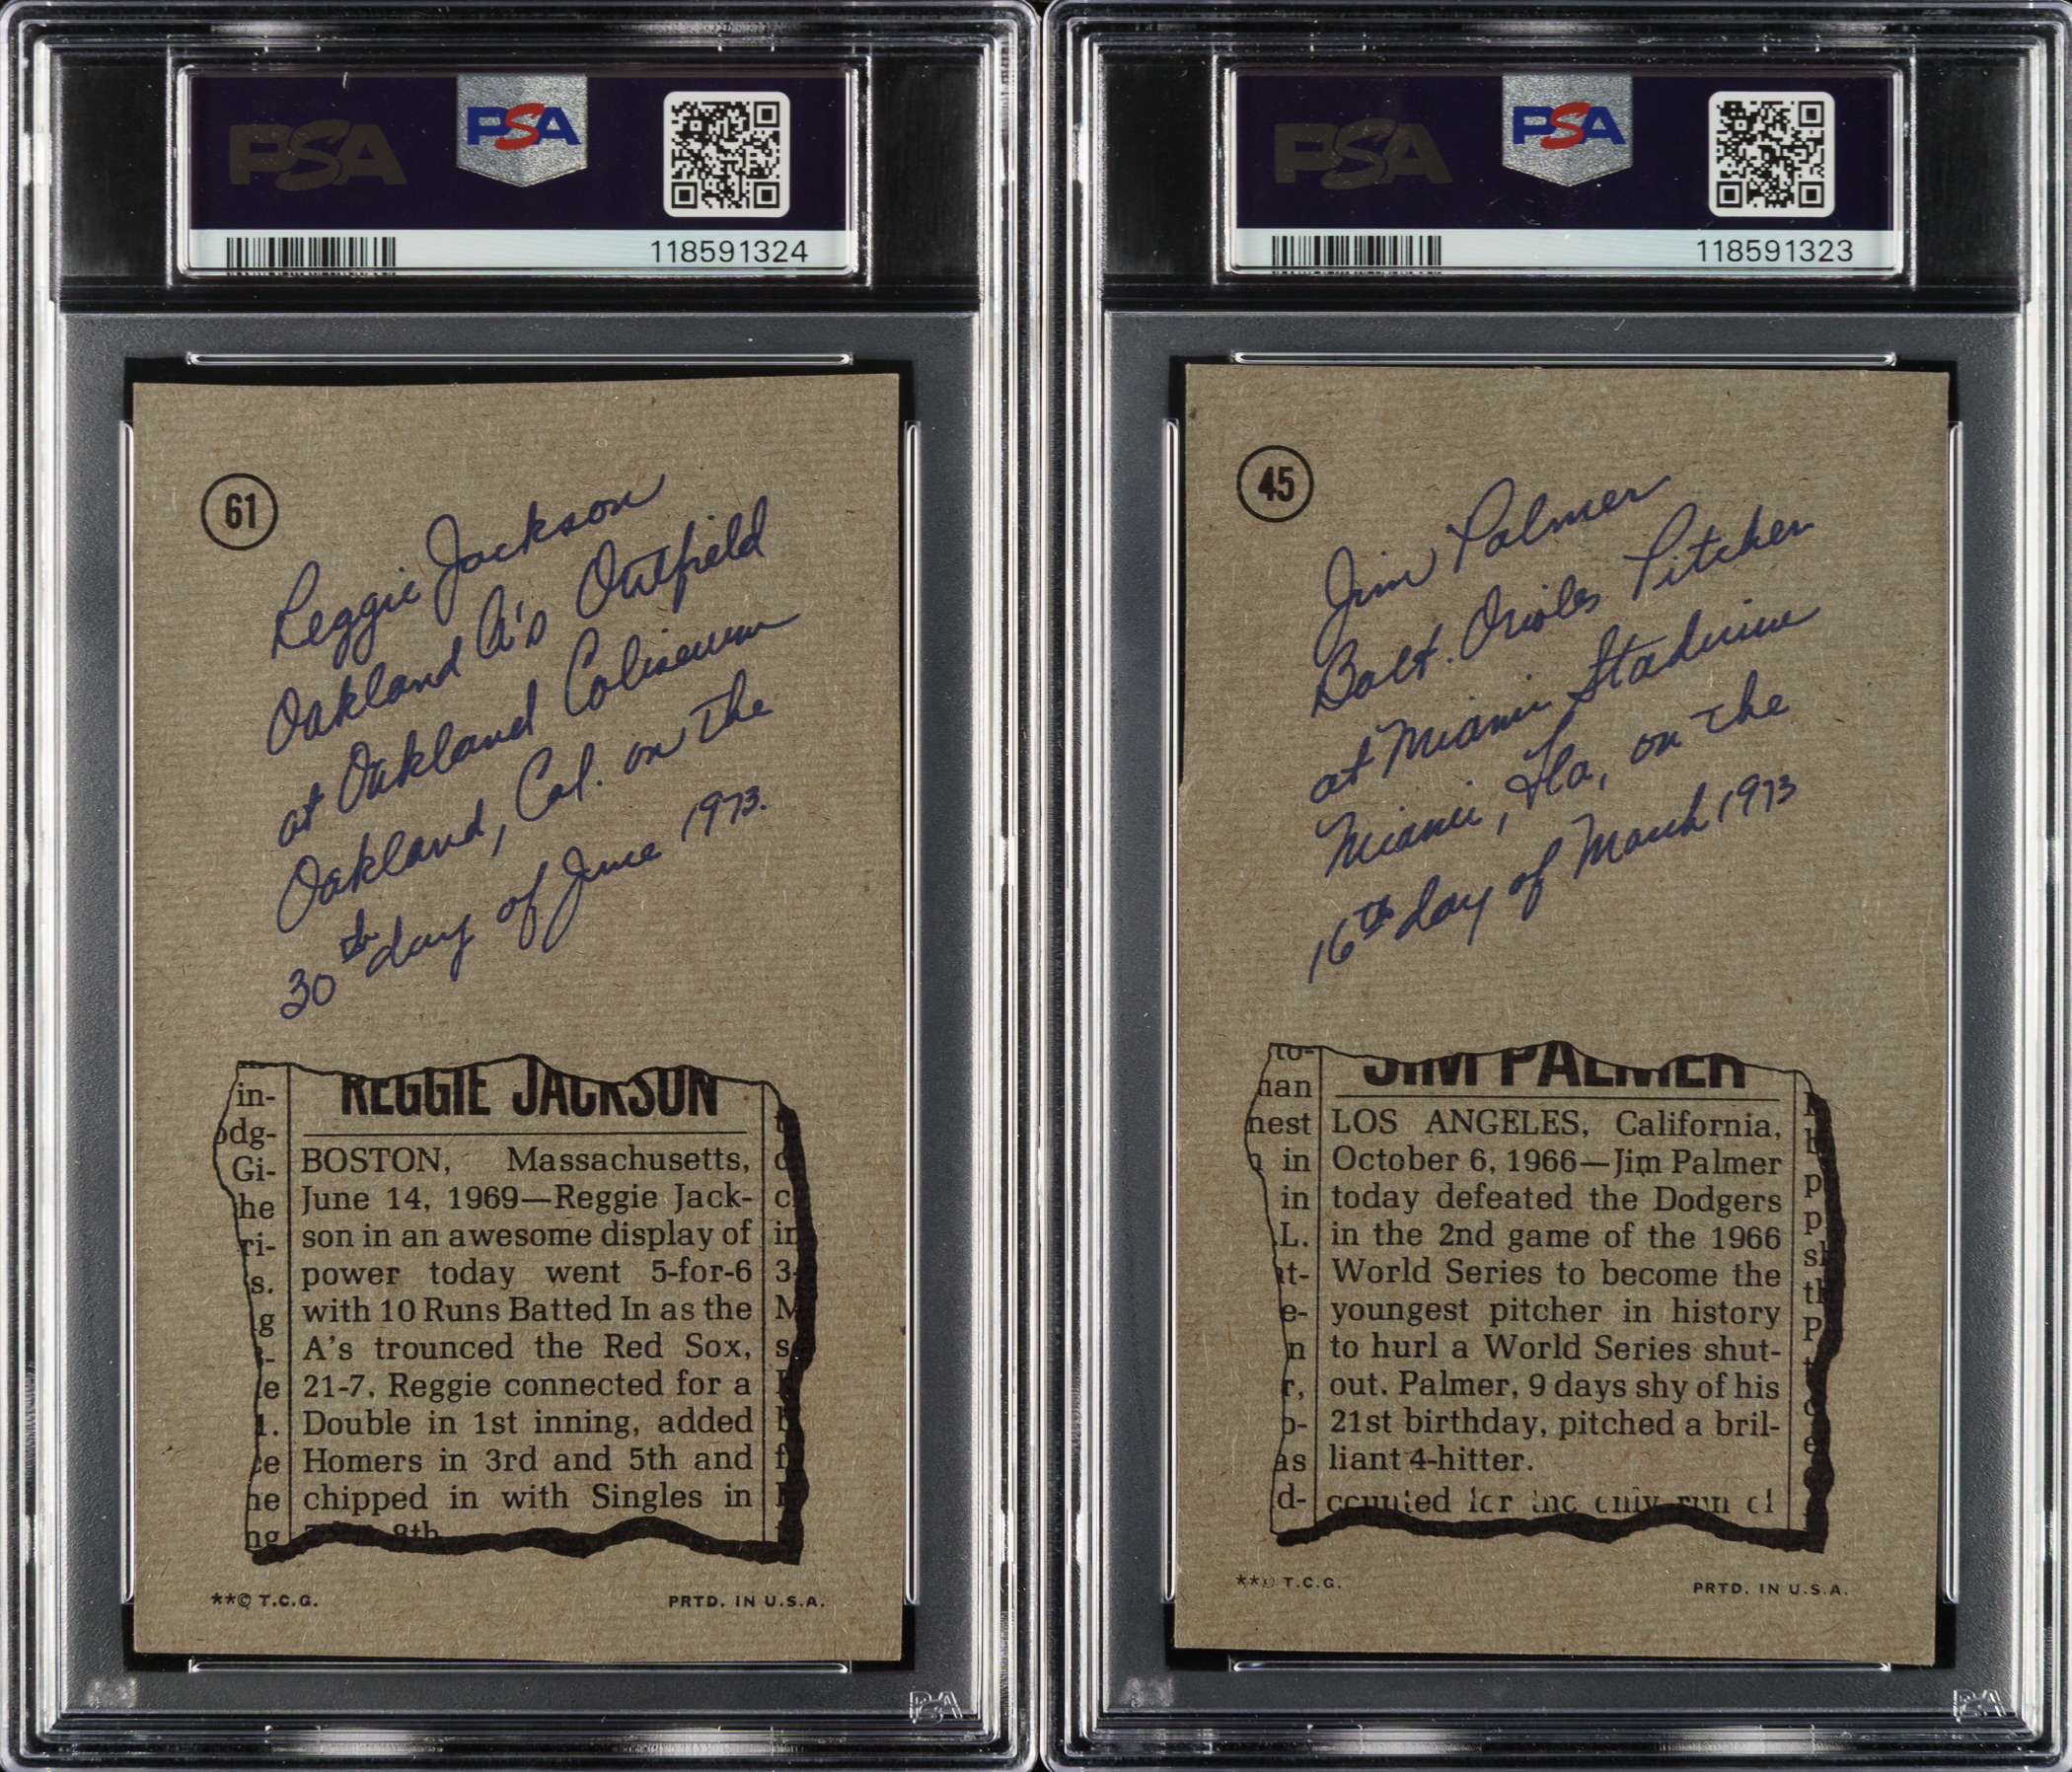 PSA
PSA
118591324
61
Reggie Jackson
Oakland A's Outfield
at Oakland Coliseum
Oakland, Cal. on the
30th day of June 1973.
REGGIE JACKSON
BOSTON, Massachusetts,
June 14, 1969—Reggie Jack-
son in an awesome display of
power today went 5-for-6
with 10 Runs Batted In as the
A's trounced the Red Sox,
21-7. Reggie connected for a
Double in 1st inning, added
Homers in 3rd and 5th and
chipped in with Singles in
8th
in-
odg-
Gi-
he
ri-
s.
g
e
1.
ce
he
ng
**© T.C.G.
PRTD. IN U.S.A.
PSA
PSA
PSA
118591323
45
Jim Palmer
Balt. Orioles Pitcher
at Miami Stadium
Miami, Fla, on the
16th day of March 1973
JIM PALMER
LOS ANGELES, California,
October 6, 1966—Jim Palmer
today defeated the Dodgers
in the 2nd game of the 1966
World Series to become the
youngest pitcher in history
to hurl a World Series shut-
out. Palmer, 9 days shy of his
21st birthday, pitched a bril-
liant 4-hitter.
counted for the only run of
to-
han
nest
in
in
L.
e-
n
r,
o-
as
d-
**© T.C.G.
PRTD. IN U.S.A.
PSA